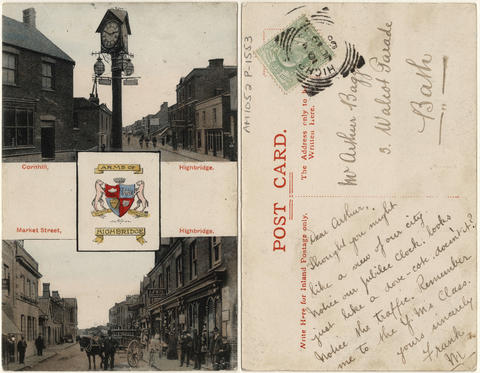 Cornhill,
Highbridge.
ARMS OF
HIGHBRIDGE
Market Street,
Highbridge.
AM1052 P-1553
POST CARD.
The Address only to be
Written Here.
Mr Arthur Bagg
3. Walcot Parade
Bath
Write Here for Inland Postage only.
Dear Arthur,
Thought you might
like a view of our city
Notice our jubilee clock. looks
just like a dove-cote, doesn't it?
Notice the traffic. Remember
me to the Y Ms Class.
yours sincerely
Frank
M